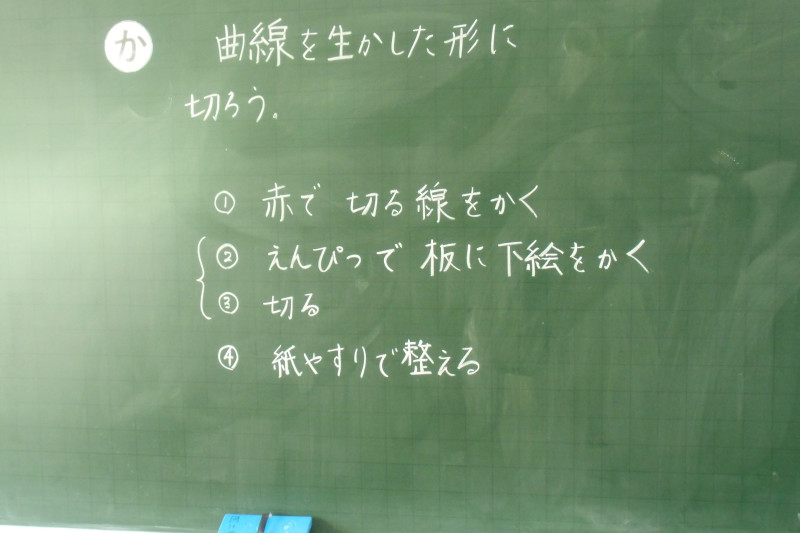 か 曲線を生かした形に
切ろう。
① 赤で 切る線をかく
② えんぴつで 板に下絵をかく
③ 切る
④ 紙やすりで整える